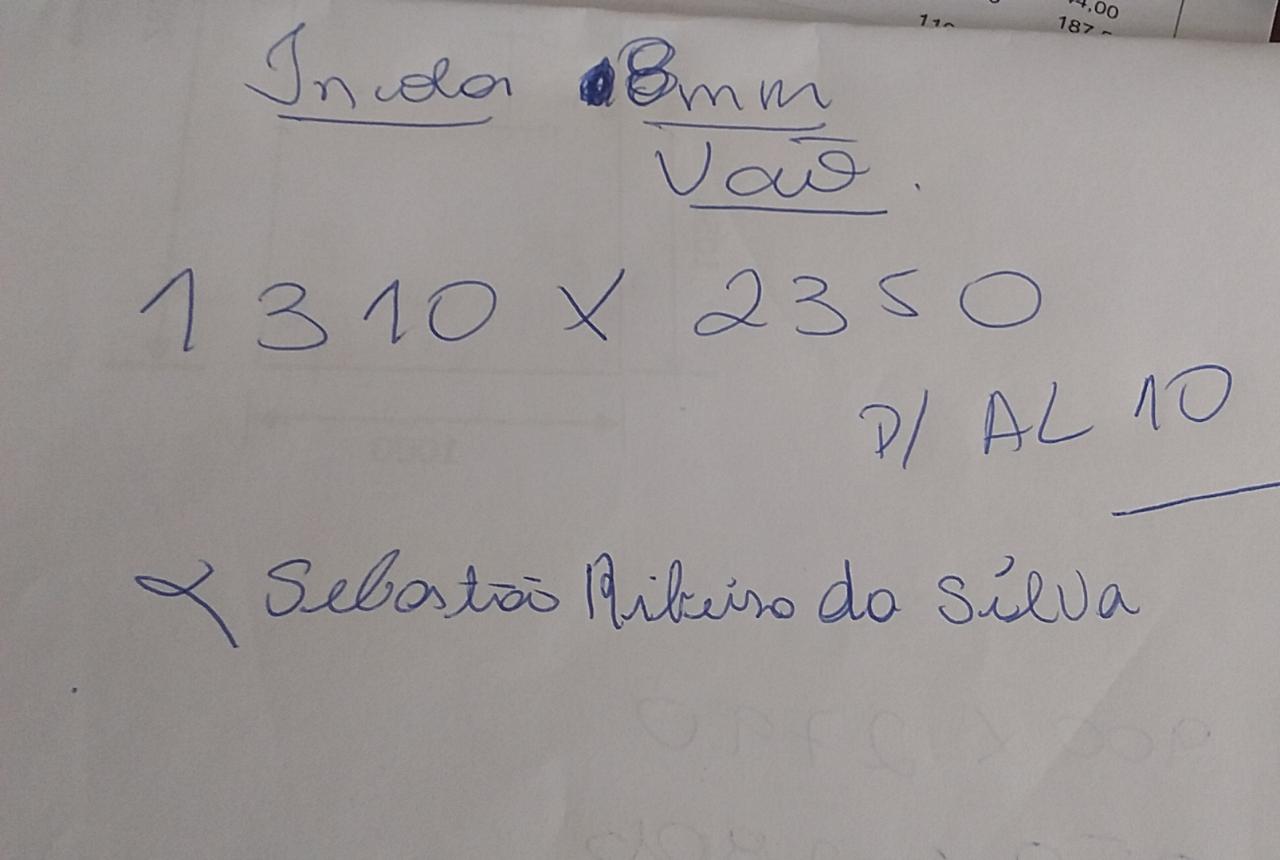 4,00
187
Incolor 8mm
Vão
1310 X 2350
P/ AL 10
Sebastião Ribeiro da Silva